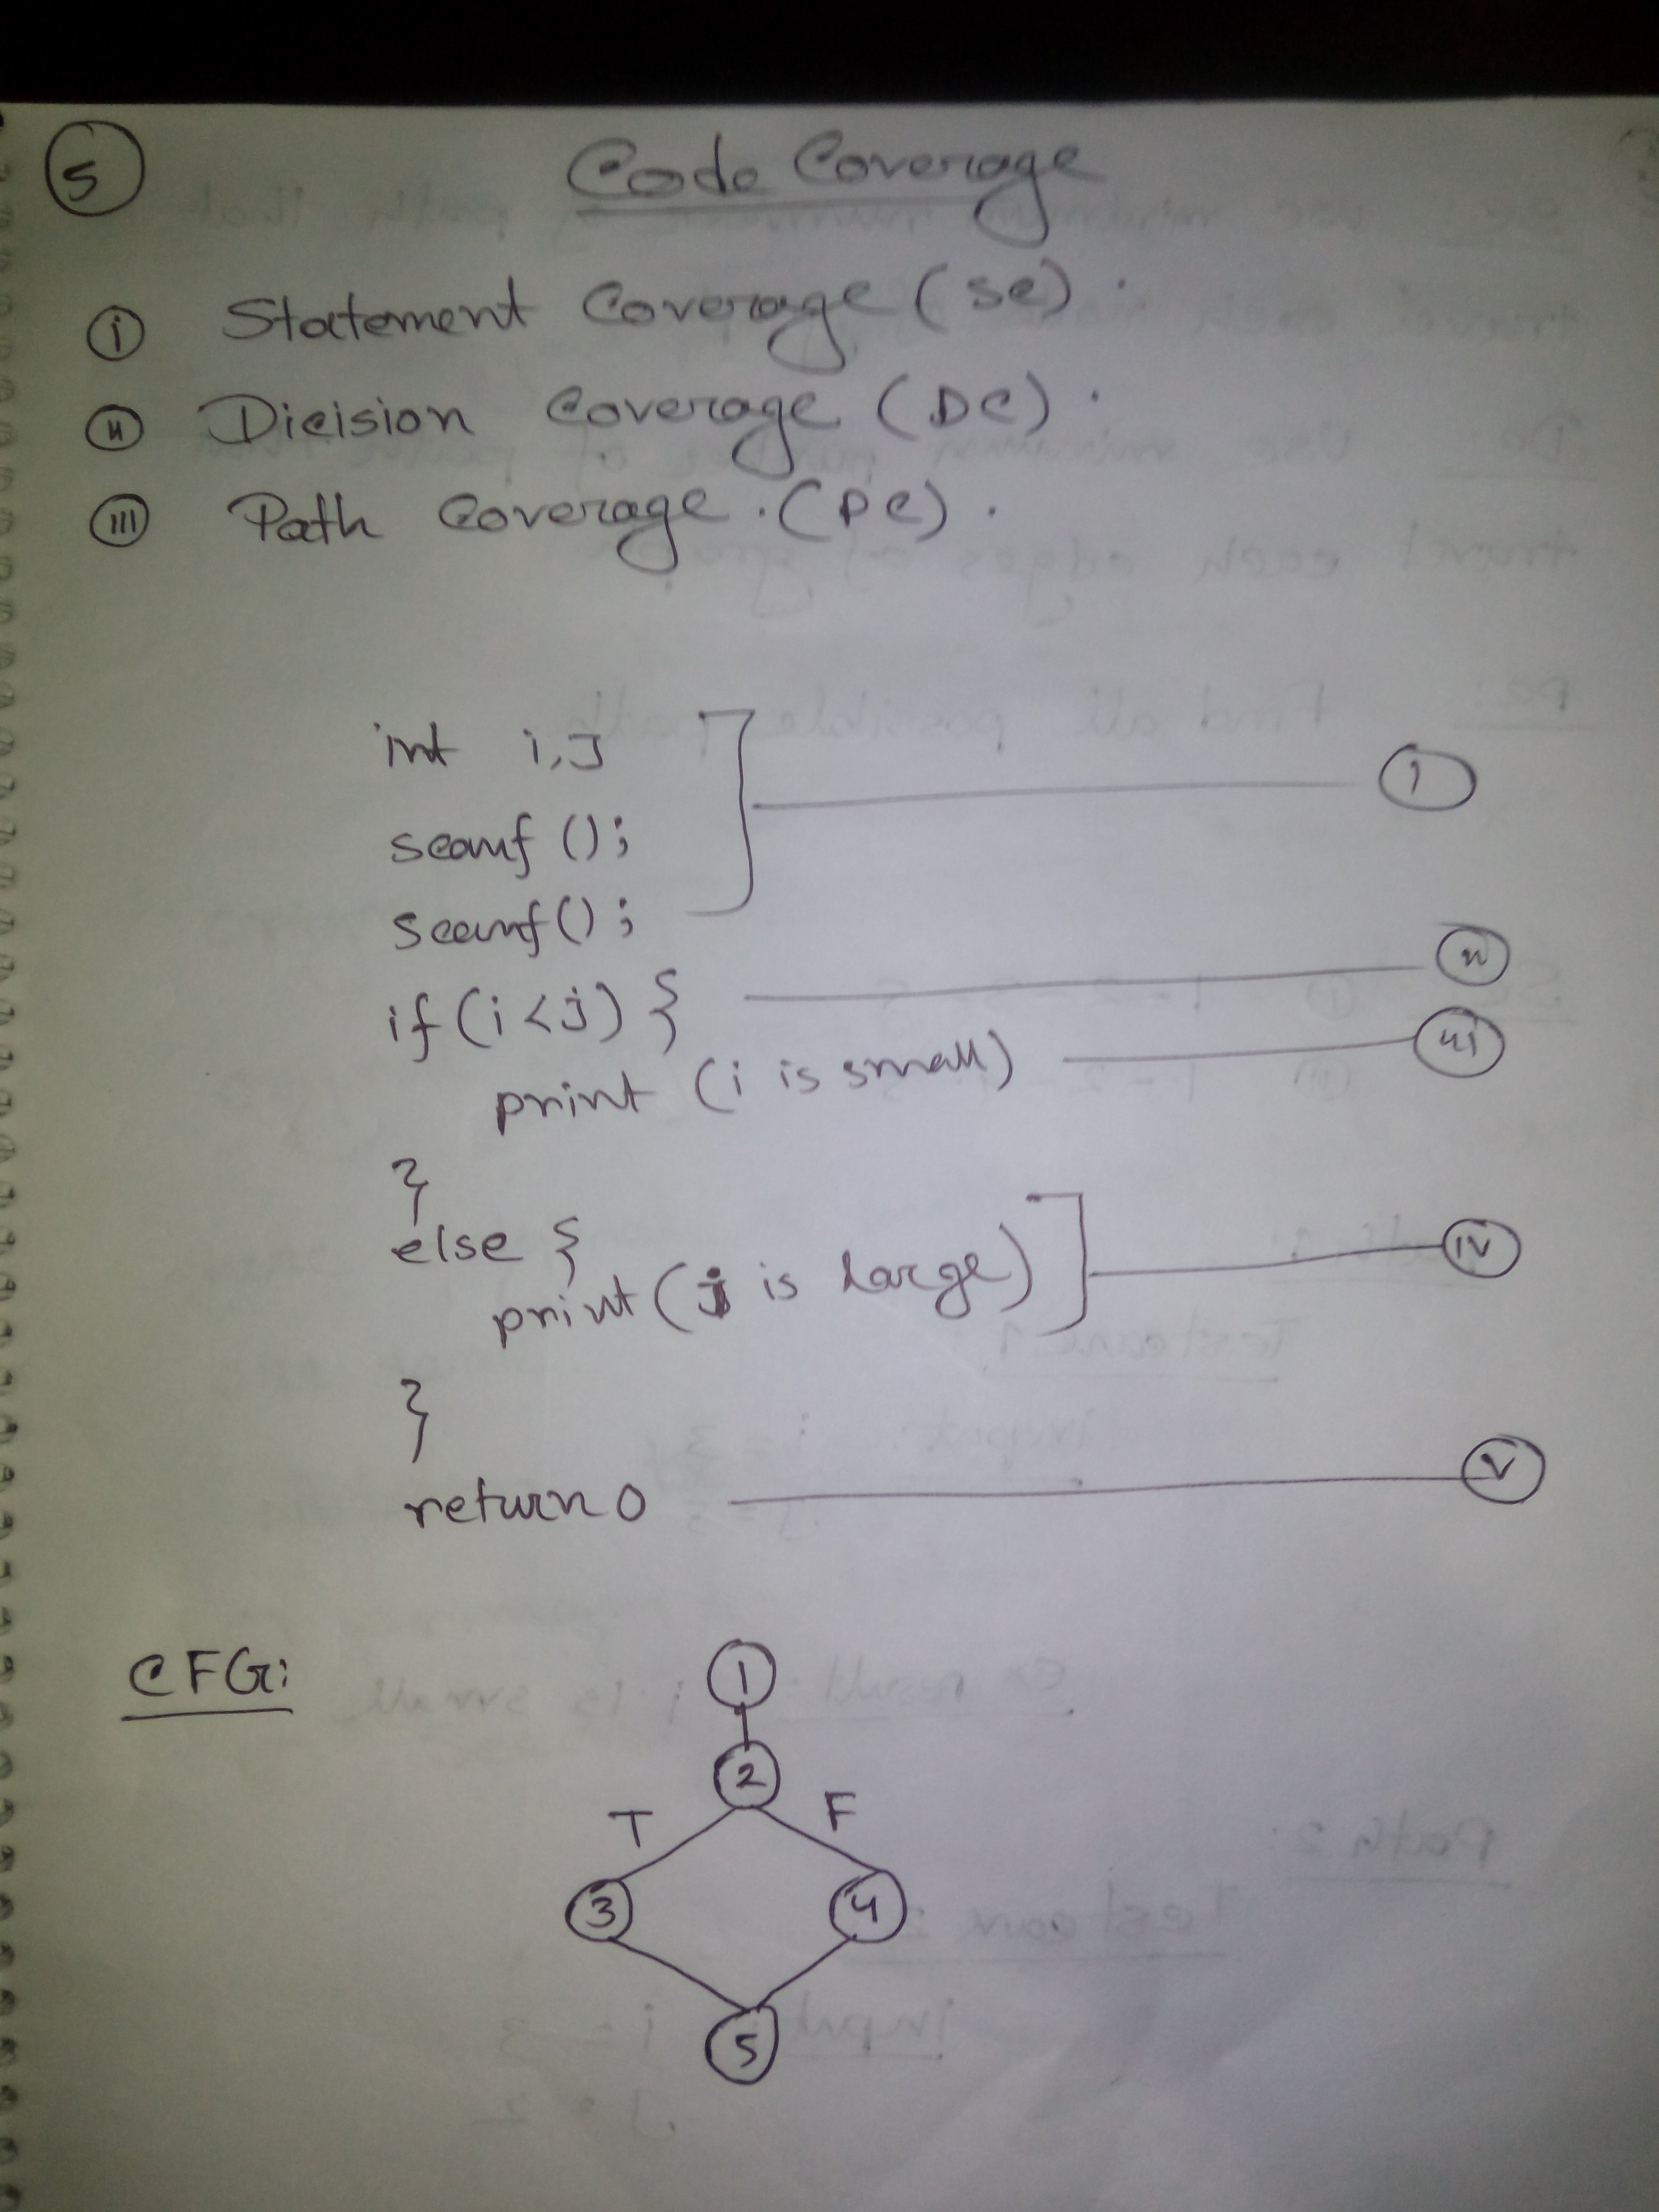 5 Code Coverage
i Statement Coverage (SC).
ii Dicision Coverage (DC).
iii Path Coverage. (PC).
int i,j
scanf ();
scanf();
i
if (i<j) {
ii
print (i is small)
iii
}
else {
print (j is large)
iv
}
return 0
v
CFG:
1
2
T F
3 4
5